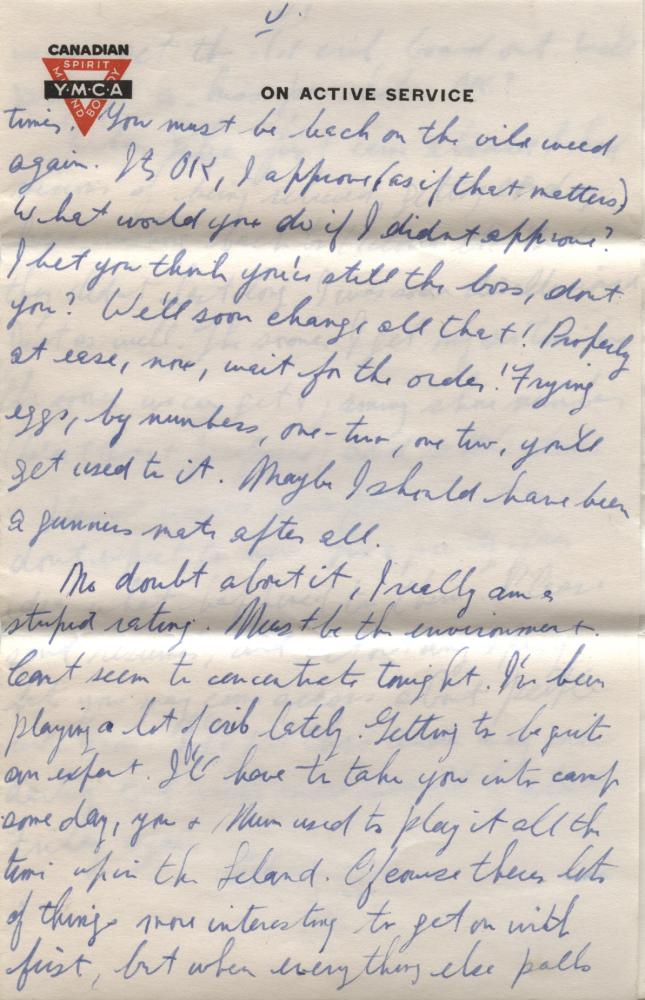 V.
CANADIAN
SPIRIT
Y·M·C·A
MIND
BODY
ON ACTIVE SERVICE
times. You must be back on the vile weed
again. Its OK, I approve (as if that matters)
What would you do if I didnt approve?
I bet you think you're still the boss, dont
you? We'll soon change all that! Properly
at ease, now, wait for the order! Frying
eggs, by numbers, one-two, one two, you'll
get used to it. Maybe I should have been
a gunners mate after all.
No doubt about it, I really am a
stupid rating. Must be the environment.
Cant seem to concentrate tonight. I've been
playing a lot of crib lately. Getting to be quite
an expert. I'll have to take you into camp
some day, you + Mum used to play it all the
time up in the Island. Of course theres lots
of things more interesting to get on with
first, but when everything else palls